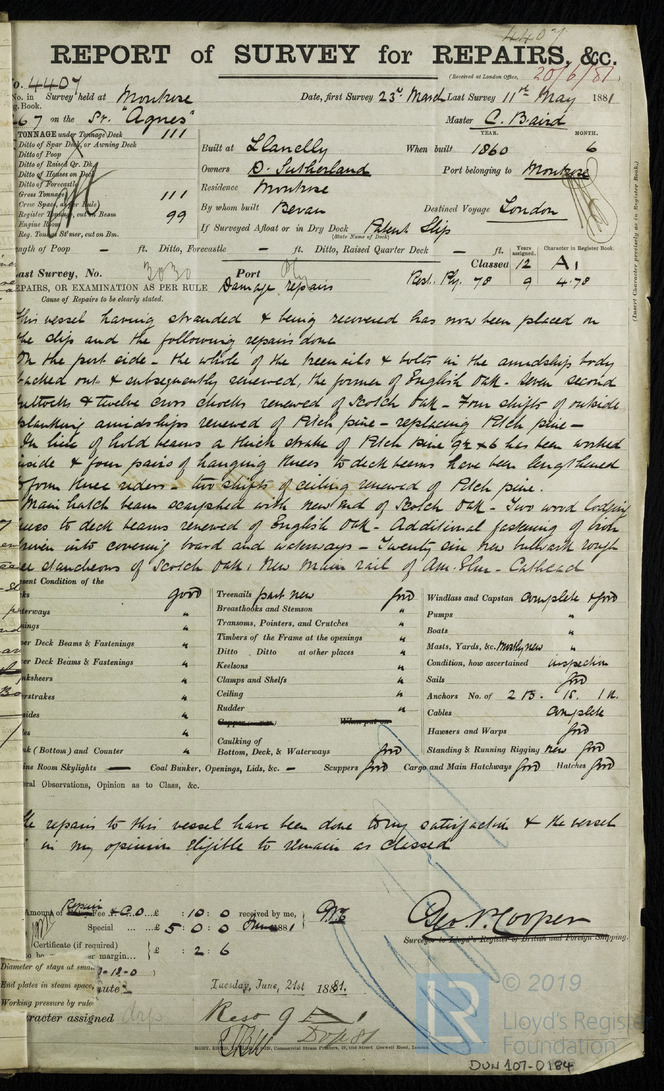 4407
REPORT of SURVEY for REPAIRS, &c.
(Received at London Office, 20/6/81
No. 4407
No. in Survey held at Montrose Date, first Survey 23rd March Last Survey 11th May 1881
g. Book.
67 on the Sr. "Agnes" Master C. Baird
TONNAGE under Tonnage Deck 111
Ditto of Spar Deck, or Awning Deck
Ditto of Poop
Ditto of Raised Qr. Dk.
Ditto of Houses on Deck
Ditto of Forecastle
Gross Tonnage 111
Crew Space, as per Rule
Register Tonnage, cut on Beam 99
Engine Room
Reg. Tonnage St'mer, cut on Bm.
YEAR. MONTH.
Built at Llanelly When built 1860 6
Owners D. Sutherland Port belonging to Montrose
Residence Montrose
By whom built Bevan Destined Voyage London
If Surveyed Afloat or in Dry Dock Patent Slip
(State Name of Dock)
(Insert Character precisely as in Register Book.)
ngth of Poop — ft. Ditto, Forecastle — ft. Ditto, Raised Quarter Deck — ft.
Years assigned. Character in Register Book.
Classed 12 A1
Last Survey, No. 3030 Port Ply
Rest. Ply. 78 9 4.78
EPAIRS, OR EXAMINATION AS PER RULE Damage repairs
Cause of Repairs to be clearly stated.
This vessel having stranded & being recovered has now been placed on
the slip and the following repairs done
On the port side - the whole of the treenails & bolts in the amidship body
backed out & subsequently renewed, the former of English Oak - Seven second
futtocks & twelve cross chocks renewed of Scotch Oak - Four shifts of outside
planking amidships renewed of Pitch pine - replacing Pitch pine -
In line of hold beams a thick strake of Pitch Pine 9½ x 6 has been worked
inside & four pairs of hanging knees to deck beams have been lengthened
to form knee riders - two shifts of ceiling renewed of Pitch pine.
Main hatch beam scarphed with new end of Scotch Oak - Two wood lodging
knees to deck beams renewed of English Oak - Additional fastening of iron
driven into covering board and waterways - Twenty six new bulwark rough
tree stancheons of Scotch Oak, New main rail of Am. Elm - Cathead
sent Condition of the
ks good
terways "
nings "
er Deck Beams & Fastenings "
er Deck Beams & Fastenings "
nksheers "
erstrakes "
sides "
es "
nk (Bottom) and Counter "
Treenails part new good
Breasthooks and Stemson "
Transoms, Pointers, and Crutches "
Timbers of the Frame at the openings "
Ditto Ditto at other places "
Keelsons "
Clamps and Shelfs "
Ceiling "
Rudder "
Copper When put on
Caulking of
Bottom, Deck, & Waterways good
Windlass and Capstan complete & good
Pumps "
Boats "
Masts, Yards, &c. Mostly new "
Condition, how ascertained inspection
Sails good
Anchors No. of 2 B. 1 S. 1 K.
Cables complete
Hawsers and Warps good
Standing & Running Rigging new good
ine Room Skylights — Coal Bunker, Openings, Lids, &c. — Scuppers good Cargo and Main Hatchways good Hatches good
eral Observations, Opinion as to Class, &c.
The repairs to this vessel have been done to my satisfaction & the vessel
is in my opinion Eligible to remain as classed
Amount of Repair Fee £ : 10 : 0 received by me,
Special ... ...£ 5 : 0 : 0 June 1881
Certificate (if required) £ : 2 : 6
margin...
Geo. P. Cooper
Surveyor to Lloyd's Register of British and Foreign Shipping.
Diameter of stays at sma
End plates in steam space,
Working pressure by rule
Tuesday, June, 21st 1881.
racter assigned
Rest 9 A 1
© 2019
LR
Lloyd's Register
Foundation
DUN 107-0184